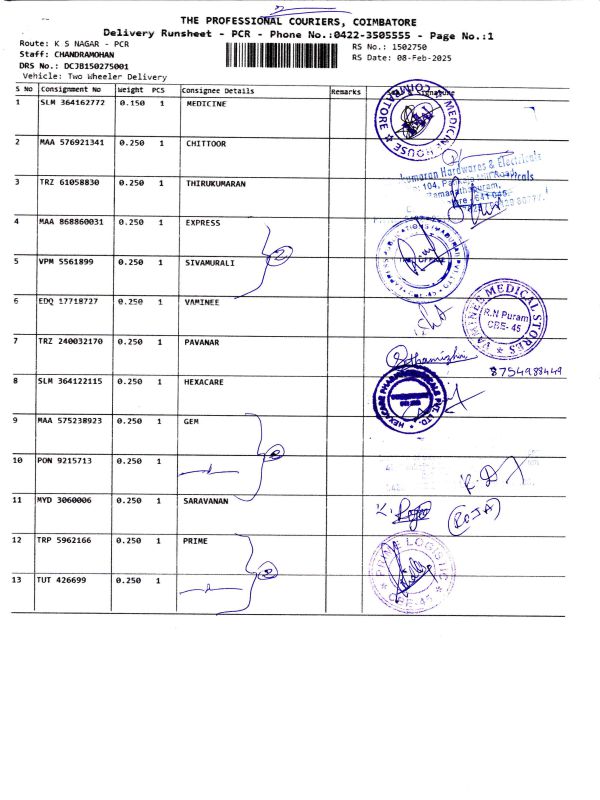 THE PROFESSIONAL COURIERS, COIMBATORE
Delivery Runsheet - PCR - Phone No.:0422-3505555 - Page No.:1
Route: K S NAGAR - PCR
Staff: CHANDRAMOHAN
DRS No.: DCJB150275001
Vehicle: Two Wheeler Delivery
RS No.: 1502750
RS Date: 08-Feb-2025
S No Consignment No Weight PCS Consignee Details Remarks Signature
1 SLM 364162772 0.150 1 MEDICINE
MEDICINE HOUSE COIMBATORE
2 MAA 576921341 0.250 1 CHITTOOR
3 TRZ 61058830 0.250 1 THIRUKUMARAN
kumaran Hardwares & Electricals
104,
Ramanathapuram,
641 045.
4 MAA 868860031 0.250 1 EXPRESS
5 VPM 5561899 0.250 1 SIVAMURALI
2
6 EDQ 17718727 0.250 1 VAMINEE
VAMINEE MEDICAL STORES
R.N Puram
CBE- 45
7 TRZ 240032170 0.250 1 PAVANAR
8754988449
8 SLM 364122115 0.250 1 HEXACARE
HEXACARE PVT. LTD.
9 MAA 575238923 0.250 1 GEM
10 PON 9215713 0.250 1
11 MYD 3060006 0.250 1 SARAVANAN
(ROJA)
12 TRP 5962166 0.250 1 PRIME
PRIME LOGISTIC
CBE-45
13 TUT 426699 0.250 1